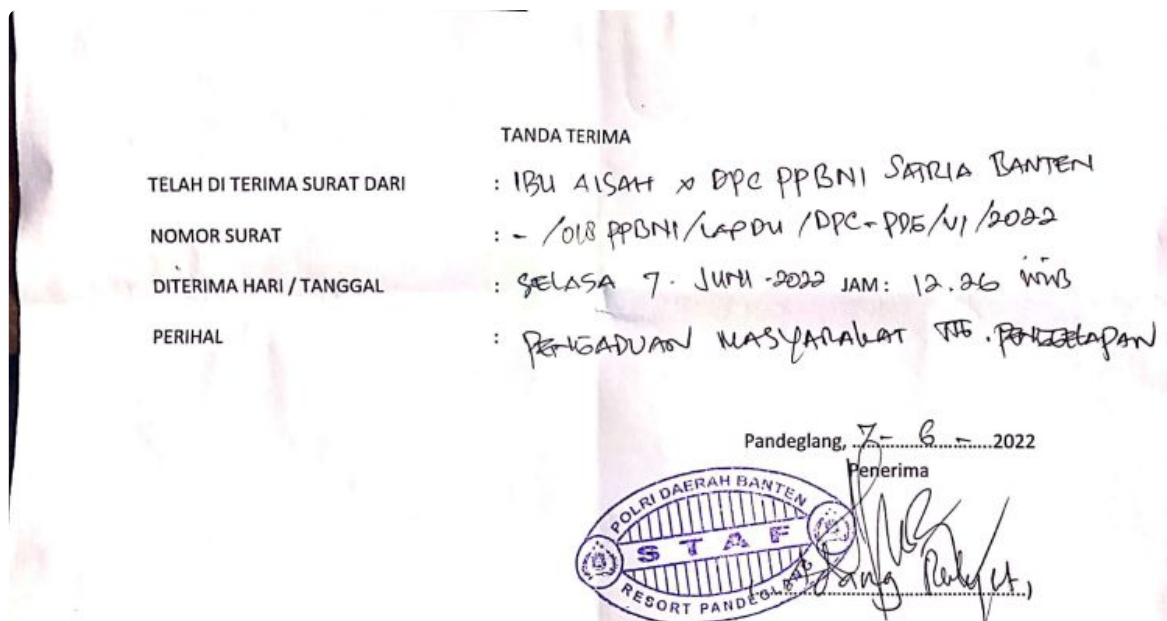 TANDA TERIMA
TELAH DI TERIMA SURAT DARI : IBU AISAH x DPC PPBNI SATRIA BANTEN
NOMOR SURAT : - /018 PPBNI/LAPDU/DPC-PDG/VI/2022
DITERIMA HARI / TANGGAL : SELASA 7. JUNI -2022 JAM: 12.26 WIB
PERIHAL : PENGADUAN MASYARAKAT PENGGELAPAN
Pandeglang, 7- 6 - 2022
Penerima
POLRI DAERAH BANTEN
STAF
RESORT PANDEGLANG